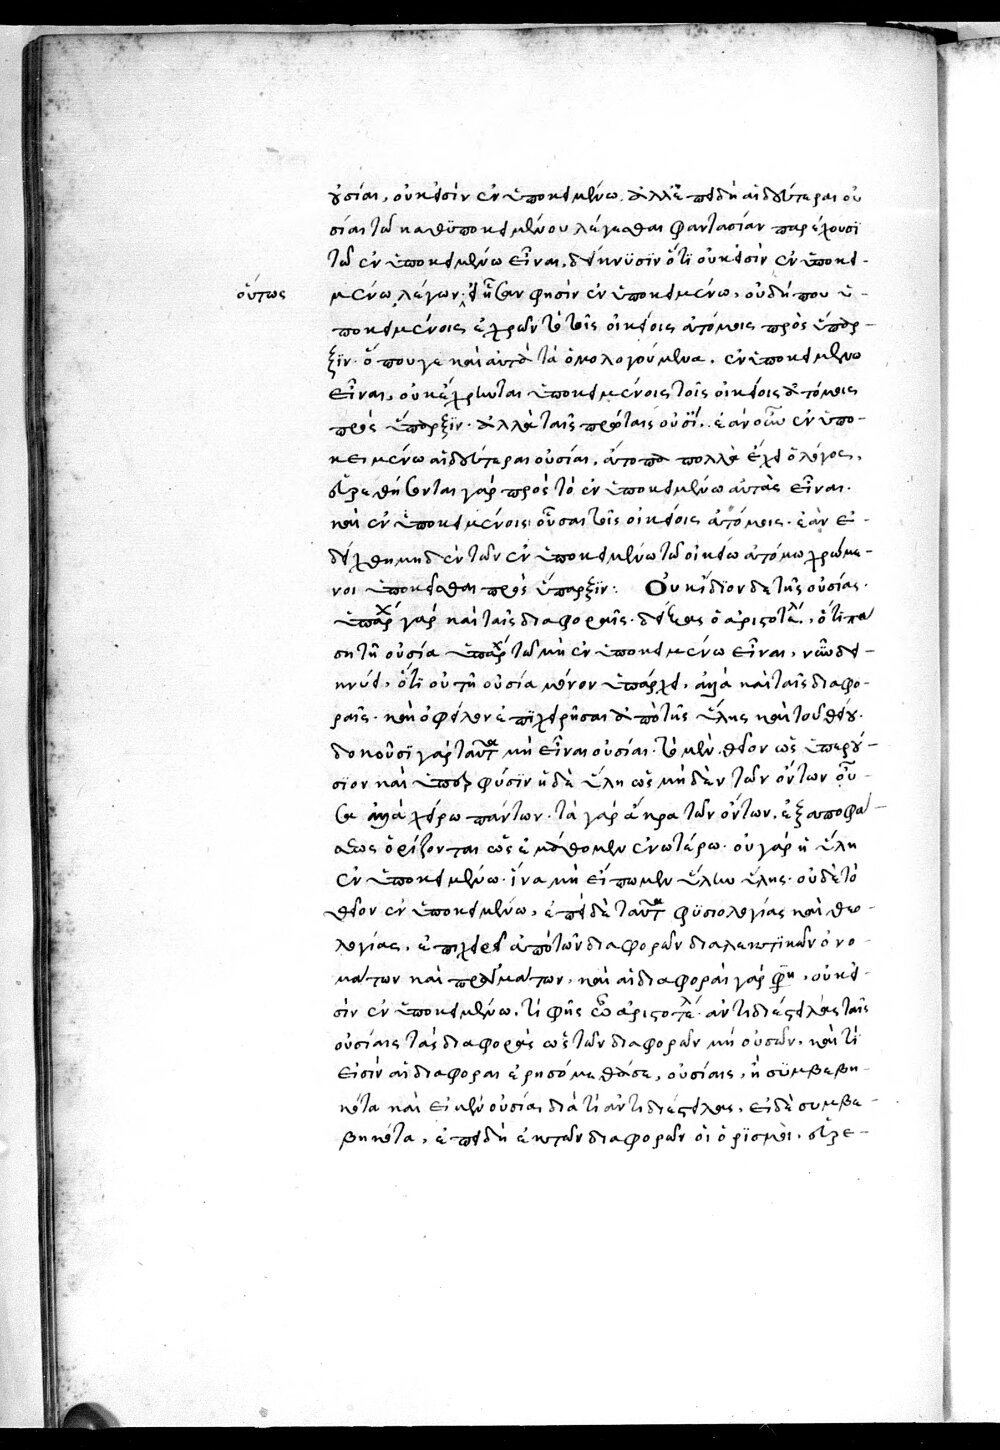 οὐσίαι, οὐκ εἰσὶν ἐν ὑποκειμένω. ἀλλ' ἐπειδὴ αἱ δεύτεραι οὐ
σίαι τῶ καθ ὑποκειμένου λέγεσθαι φαντασίαν παρέχουσϊ
τῶ ἐν ὑποκειμένω εἶναι, δείκνυσϊν ὅτϊ οὐκ εἰσὶν ἐν ὑποκει-
οὕτως
μένω, λέγων· εἰ ἦσαν φησὶν ἐν ὑποκειμένω, οὐ δήπου ὑ-
ποκειμένοις ἐχρῶντο τοῖς οἰκείοις ἀτόμοις πρὸς ὕπαρ-
ξϊν. ὅπου γε καὶ αὐτὰ τὰ ὁμολογούμενα, ἐν ὑποκειμένω
εἶναι, οὐ κέχρηνται ὑποκειμένοις τοῖς οἰκείοις ἀτόμοις
πρὸς ὕπαρξϊν. ἀλλὰ ταῖς πρώταις οὐσί. ἐὰν οὖν ἐν ὑπο-
κειμένω αἱ δεύτεραι οὐσίαι, ἄτοπα πολλὰ ἕξει ὁ λόγος.
εὑρεθήσονται γὰρ πρὸς τὸ ἐν ὑποκειμένω αὐτὰς εἶναι.
καὶ ἐν ὑποκειμένοις οὖσαι τοῖς οἰκείοις ἀτόμοις. ἐὰν ἐ-
δείχθη μηδὲν τῶν ἐν ὑποκειμένω τῶ οἰκείω ἀτόμω χρώμε-
νοι ὑποκεῖσθαι πρὸς ὕπαρξϊν: Οὐκ ἴδϊον δὲ τῆς οὐσίας.
ὑπάρχ γὰρ καὶ ταῖς διαφοραῖς. δείξας ὁ ἀριστοτέλ, ὅτϊ πα
ση τῆ οὐσία ὑπάρχ τῶ μὴ ἐν ὑποκειμένω εἶναι, νῦν δει-
κνύει, ὅτϊ οὐ τῆ οὐσία μόνον ὑπάρχει, ἀλλὰ καὶ ταῖς διαφο-
ραῖς. καὶ ὤφειλεν ἐπϊχειρῆσαι ἀπὸ τῆς ὕλης καὶ τοῦ θείου.
δοκοῦσϊ γὰρ ταῦτα μὴ εἶναι οὐσίαι. τὸ μὲν θεῖον ὡς ὑπερού-
σϊον καὶ ὑπὲρ φύσϊν ἡ δὲ ὕλη ὡς μηδὲν τῶν ὄντων οὖ-
σα ἀλλὰ χείρω πάντων. τὰ γὰρ ἄκρα τῶν ὄντων, ἐξ ἀποφά-
σεως ὁρίζονται ὡς ἐμάθομεν ἀνωτέρω. οὐ γὰρ ἡ ὕλη
ἐν ὑποκειμένω. ἵνα μὴ εἴπωμεν ὕλην ὕλης. οὐδὲ τὸ
θεῖον ἐν ὑποκειμένω, ἐπεὶ δὲ ταῦτα φϋσιολογίας καὶ θεο-
λογίας, ἐπιχειρεῖ ἀπὸ τῶν διαφορῶν διαλεκτϊκῶν ὀνο-
μάτων καὶ πραγμάτων, καὶ αἱ διαφοραὶ γάρ φη, οὐκ εἰ-
σὶν ἐν ὑποκειμένω, τί φῂς ὦ ἀριστοτέλ. ἀντιδιέστειλας ταῖς
οὐσίαις τὰς διαφορὰς ὡς τῶν διαφορῶν μὴ οὐσῶν, καὶ τί
εἰσὶν αἱ διαφοραὶ ἐρησόμεθά σε, οὐσίαις, ἢ συμβεβη-
κότα καὶ εἰ μὲν οὐσίαι διὰ τί ἀντιδιέστειλας, εἰ δὲ συμβε-
βηκότα, ἐπειδὴ ἐκ τῶν διαφορῶν οἱ ὁρϊσμοὶ, εὑρε-